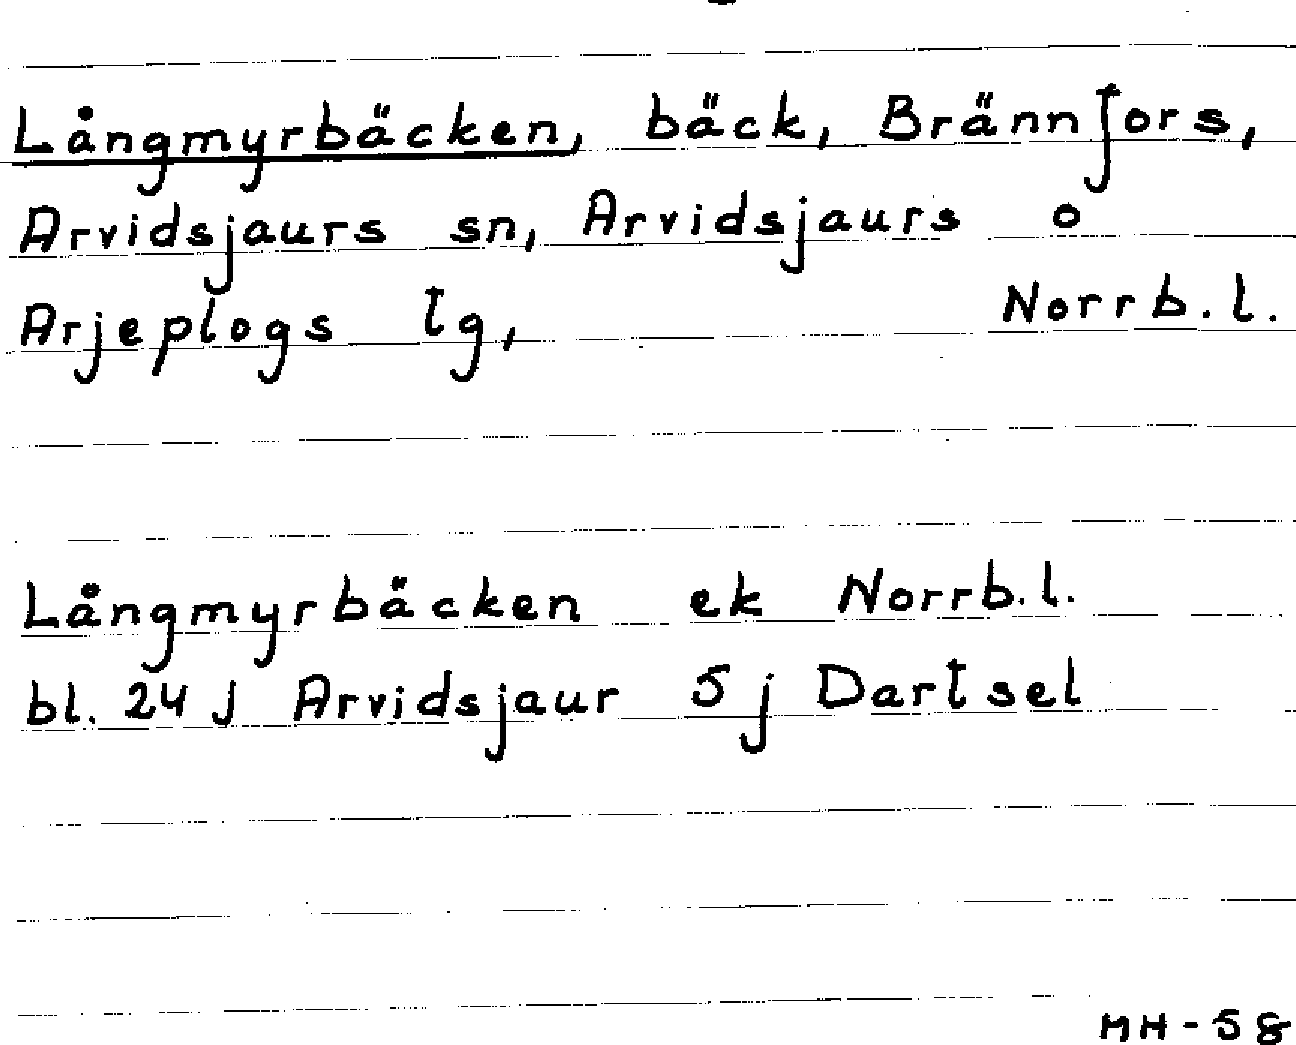 Långmyrbäcken, bäck, Brännfors,
Arvidsjaurs sn, Arvidsjaurs o
Arjeplogs lg, Norrb.l.
Långmyrbäcken ek Norrb.l.
bl. 24 J Arvidsjaur 5 j Dartsel
MH-58